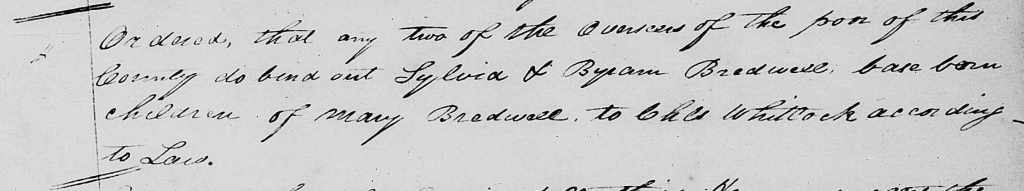 Ordered, that any two of the Overseers of the poor of this
County do bind out Sylvia & Byram Bradwell, base born
children of Mary Bradwell, to Chls Whitlock according
to Law.